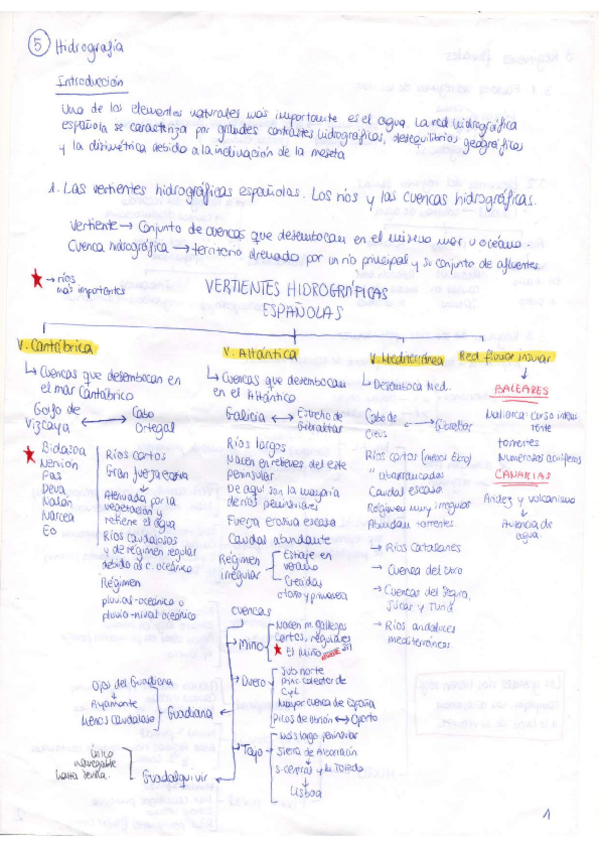 5 Hidrografía
Introducción
Uno de los elementos naturales más importante es el agua. La red hidrográfica
española se caracteriza por grandes contrastes hidrográficos, desequilibrios geográficos
y la disimétrica debido a la inclinación de la meseta
1. Las vertientes hidrográficas españolas. Los ríos y las cuencas hidrográficas.
Vertiente → Conjunto de cuencas que desembocan en el mismo mar u océano.
Cuenca hidrográfica → territorio drenado por un río principal y su conjunto de afluentes.
★ → ríos
más importantes
VERTIENTES HIDROGRÁFICAS
ESPAÑOLAS
V. Cantábrica
↳ Cuencas que desembocan en
el mar Cantábrico
Golfo de Vizcaya ↔ Cabo Ortegal
★ Bidasoa
Nervión
Pas
Deva
Nalón
Narcea
Eo
Ríos cortos
Gran fuerza erosiva
↓
Atenuada por la
vegetación y
retiene el agua
Ríos caudalosos
y de régimen regular
debido al c. oceánico
Régimen
pluvial-oceánico o
pluvio-nival oceánico
V. Atlántica
↳ Cuencas que desembocan
en el Atlántico
Galicia ↔ Estrecho de Gibraltar
Ríos largos
Nacen en rebordes del este
peninsular
De aquí son la mayoría
de ríos peninsulares
Fuerza erosiva escasa
Caudal abundante
Régimen irregular
Estiaje en
verano
Crecidas
otoño y primavera
cuencas
→ Miño
Nacen m. gallegos
cortos, regulares
★ El Miño
→ Duero
Sub norte
Princ. colector de
CyL
Mayor cuenca de España
Picos de Urbión ↔ Oporto
→ Tajo
Más largo peninsular
Sierra de Albarracín
↓
S. central y m. Toledo
↓
Lisboa
Guadiana
Ojos del Guadiana
↓
Ayamonte
Menos caudaloso
Guadalquivir
Único
navegable
hasta Sevilla.
V. Mediterránea
↳ Desemboca Med.
Cabo de Creus ↔ Gibraltar
Ríos cortos (menos Ebro)
" abarrancados
Caudal escaso
Régimen muy irregular
Abundan torrentes.
→ Ríos Catalanes
→ Cuenca del Ebro
→ Cuencas del Segura,
Júcar y Turia
→ Ríos andaluces
mediterráneos.
Red fluvial insular
↓
BALEARES
Mallorca: curso intermi
tente
torrentes
Numerosos acuíferos
CANARIAS
Aridez y volcanismo
↓
Ausencia de
agua.
1